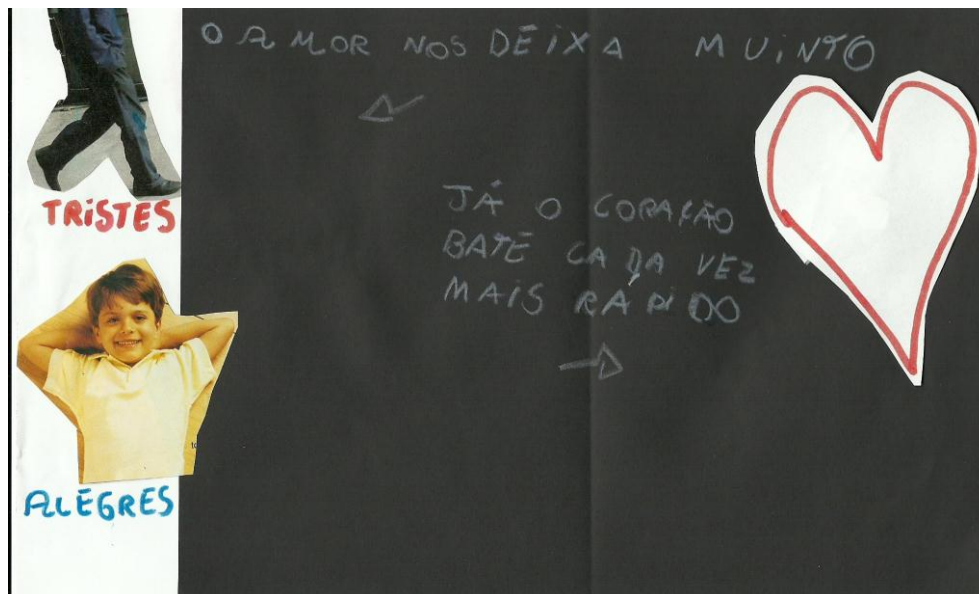 O AMOR NOS DEIXA MUINTO
TRISTES
ALEGRES
JÁ O CORAÇÃO
BATE CADA VEZ
MAIS RÁPIDO